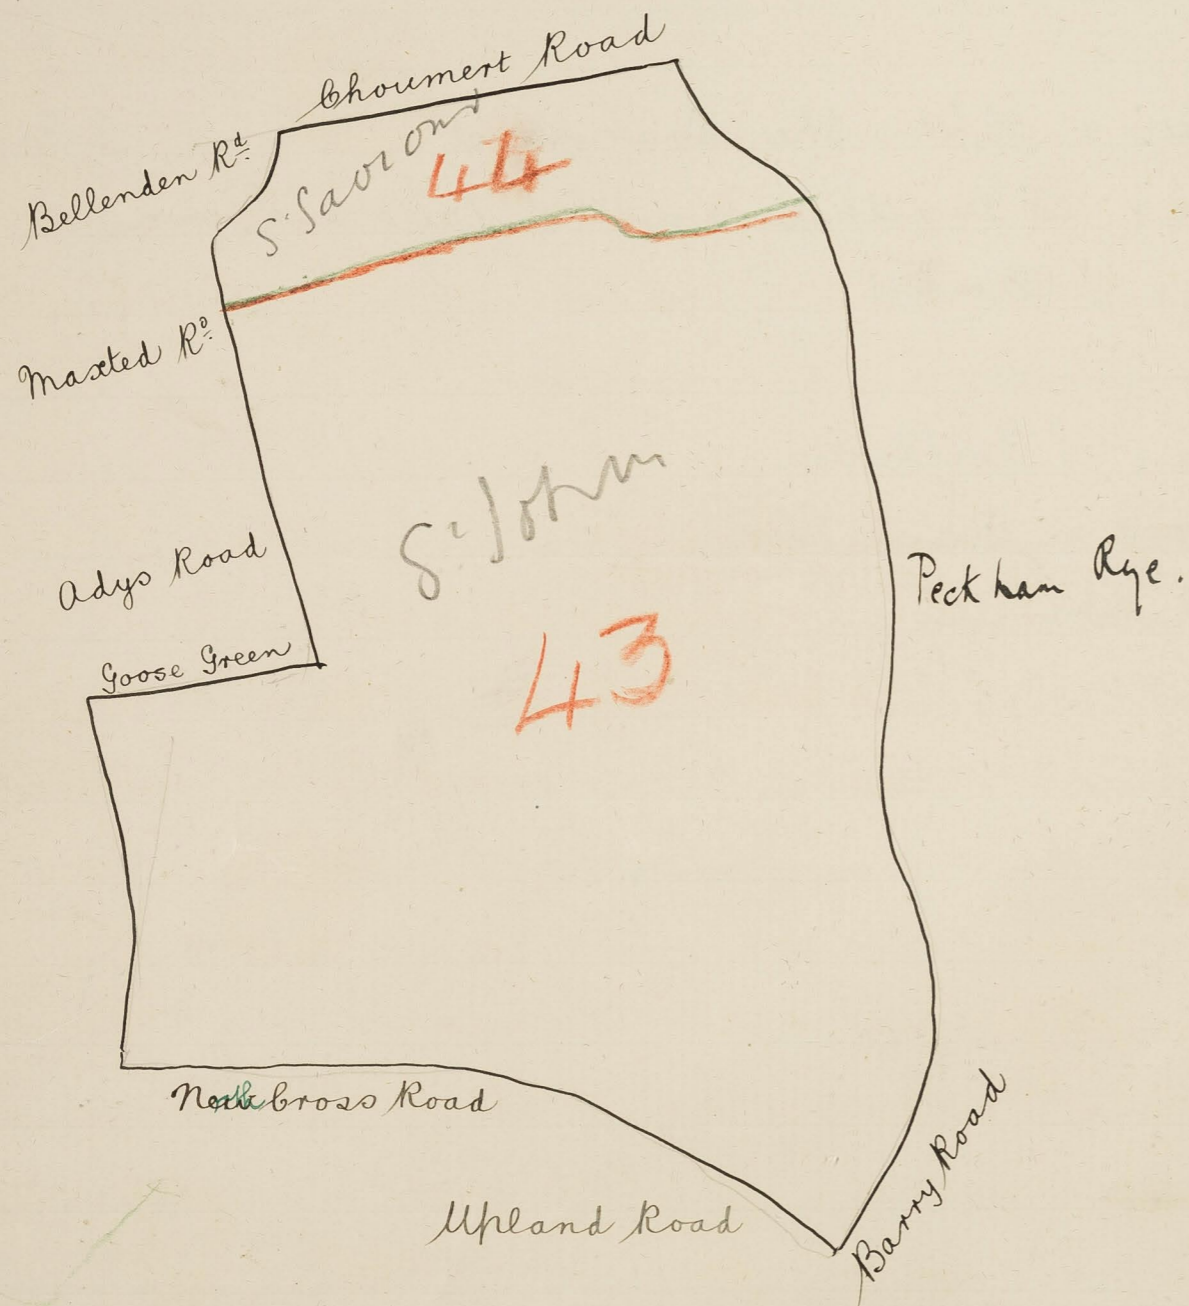 Choumert Road
Bellenden Rd
St Saviours
44
Maxted Ro
St Johns
Adys Road
Peckham Rye.
Goose Green
43
Cross Road
Upland Road
Barry Road